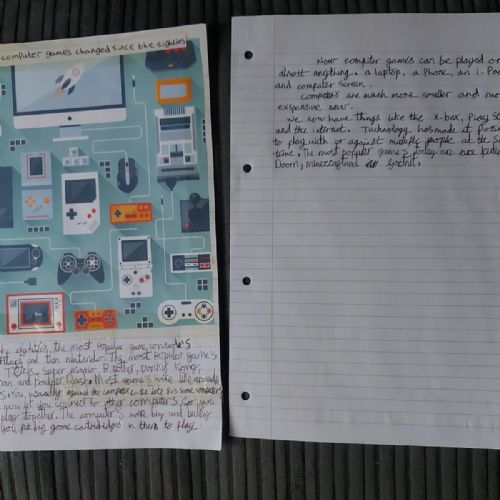 computer games changed since the eighties
the eighties, the most popular game consoles
and then nintendo. The most popular game's
Tetris, Super Mario Brother, Donkey Kong,
man and Boulder Dash. Most games were like arcade
you, usually against the computer. In the late 80s some computers
you connect to other computers, so you
play together. The computers were big and bulky
you put big game cartridges in them to play.
Now computer games can be played on
almost anything. a laptop, a Phone, an i-Pad
and computer screen.
Computers are much more smaller and
expensive now.
We now have things like the X-box, Play
and the internet. Technology has made it
to play with or against multiple people at the
time. The most popular games today are
Doom, Minecraft and